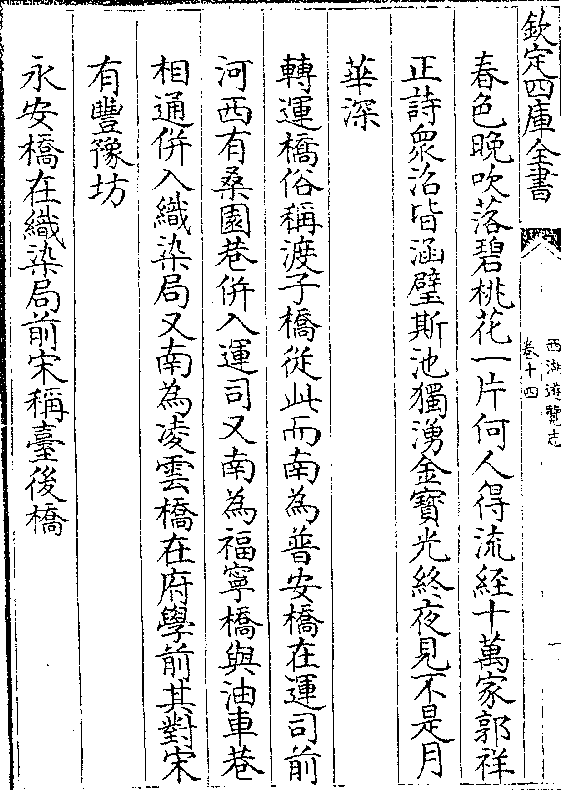 欽定四庫全書
西湖遊覽志
卷十四
一
春色晚吹落碧桃花一片何人得流經十萬家郭祥
正詩衆沿皆涵璧斯池獨湧金寶光終夜見不是月
華深
轉運橋俗稱渡子橋從此而南為普安橋在運司前
河西有桑園巷併入運司又南為福寧橋與油車巷
相通併入織染局又南為凌雲橋在府學前其對宋
有豐豫坊
永安橋在織染局前宋稱臺後橋